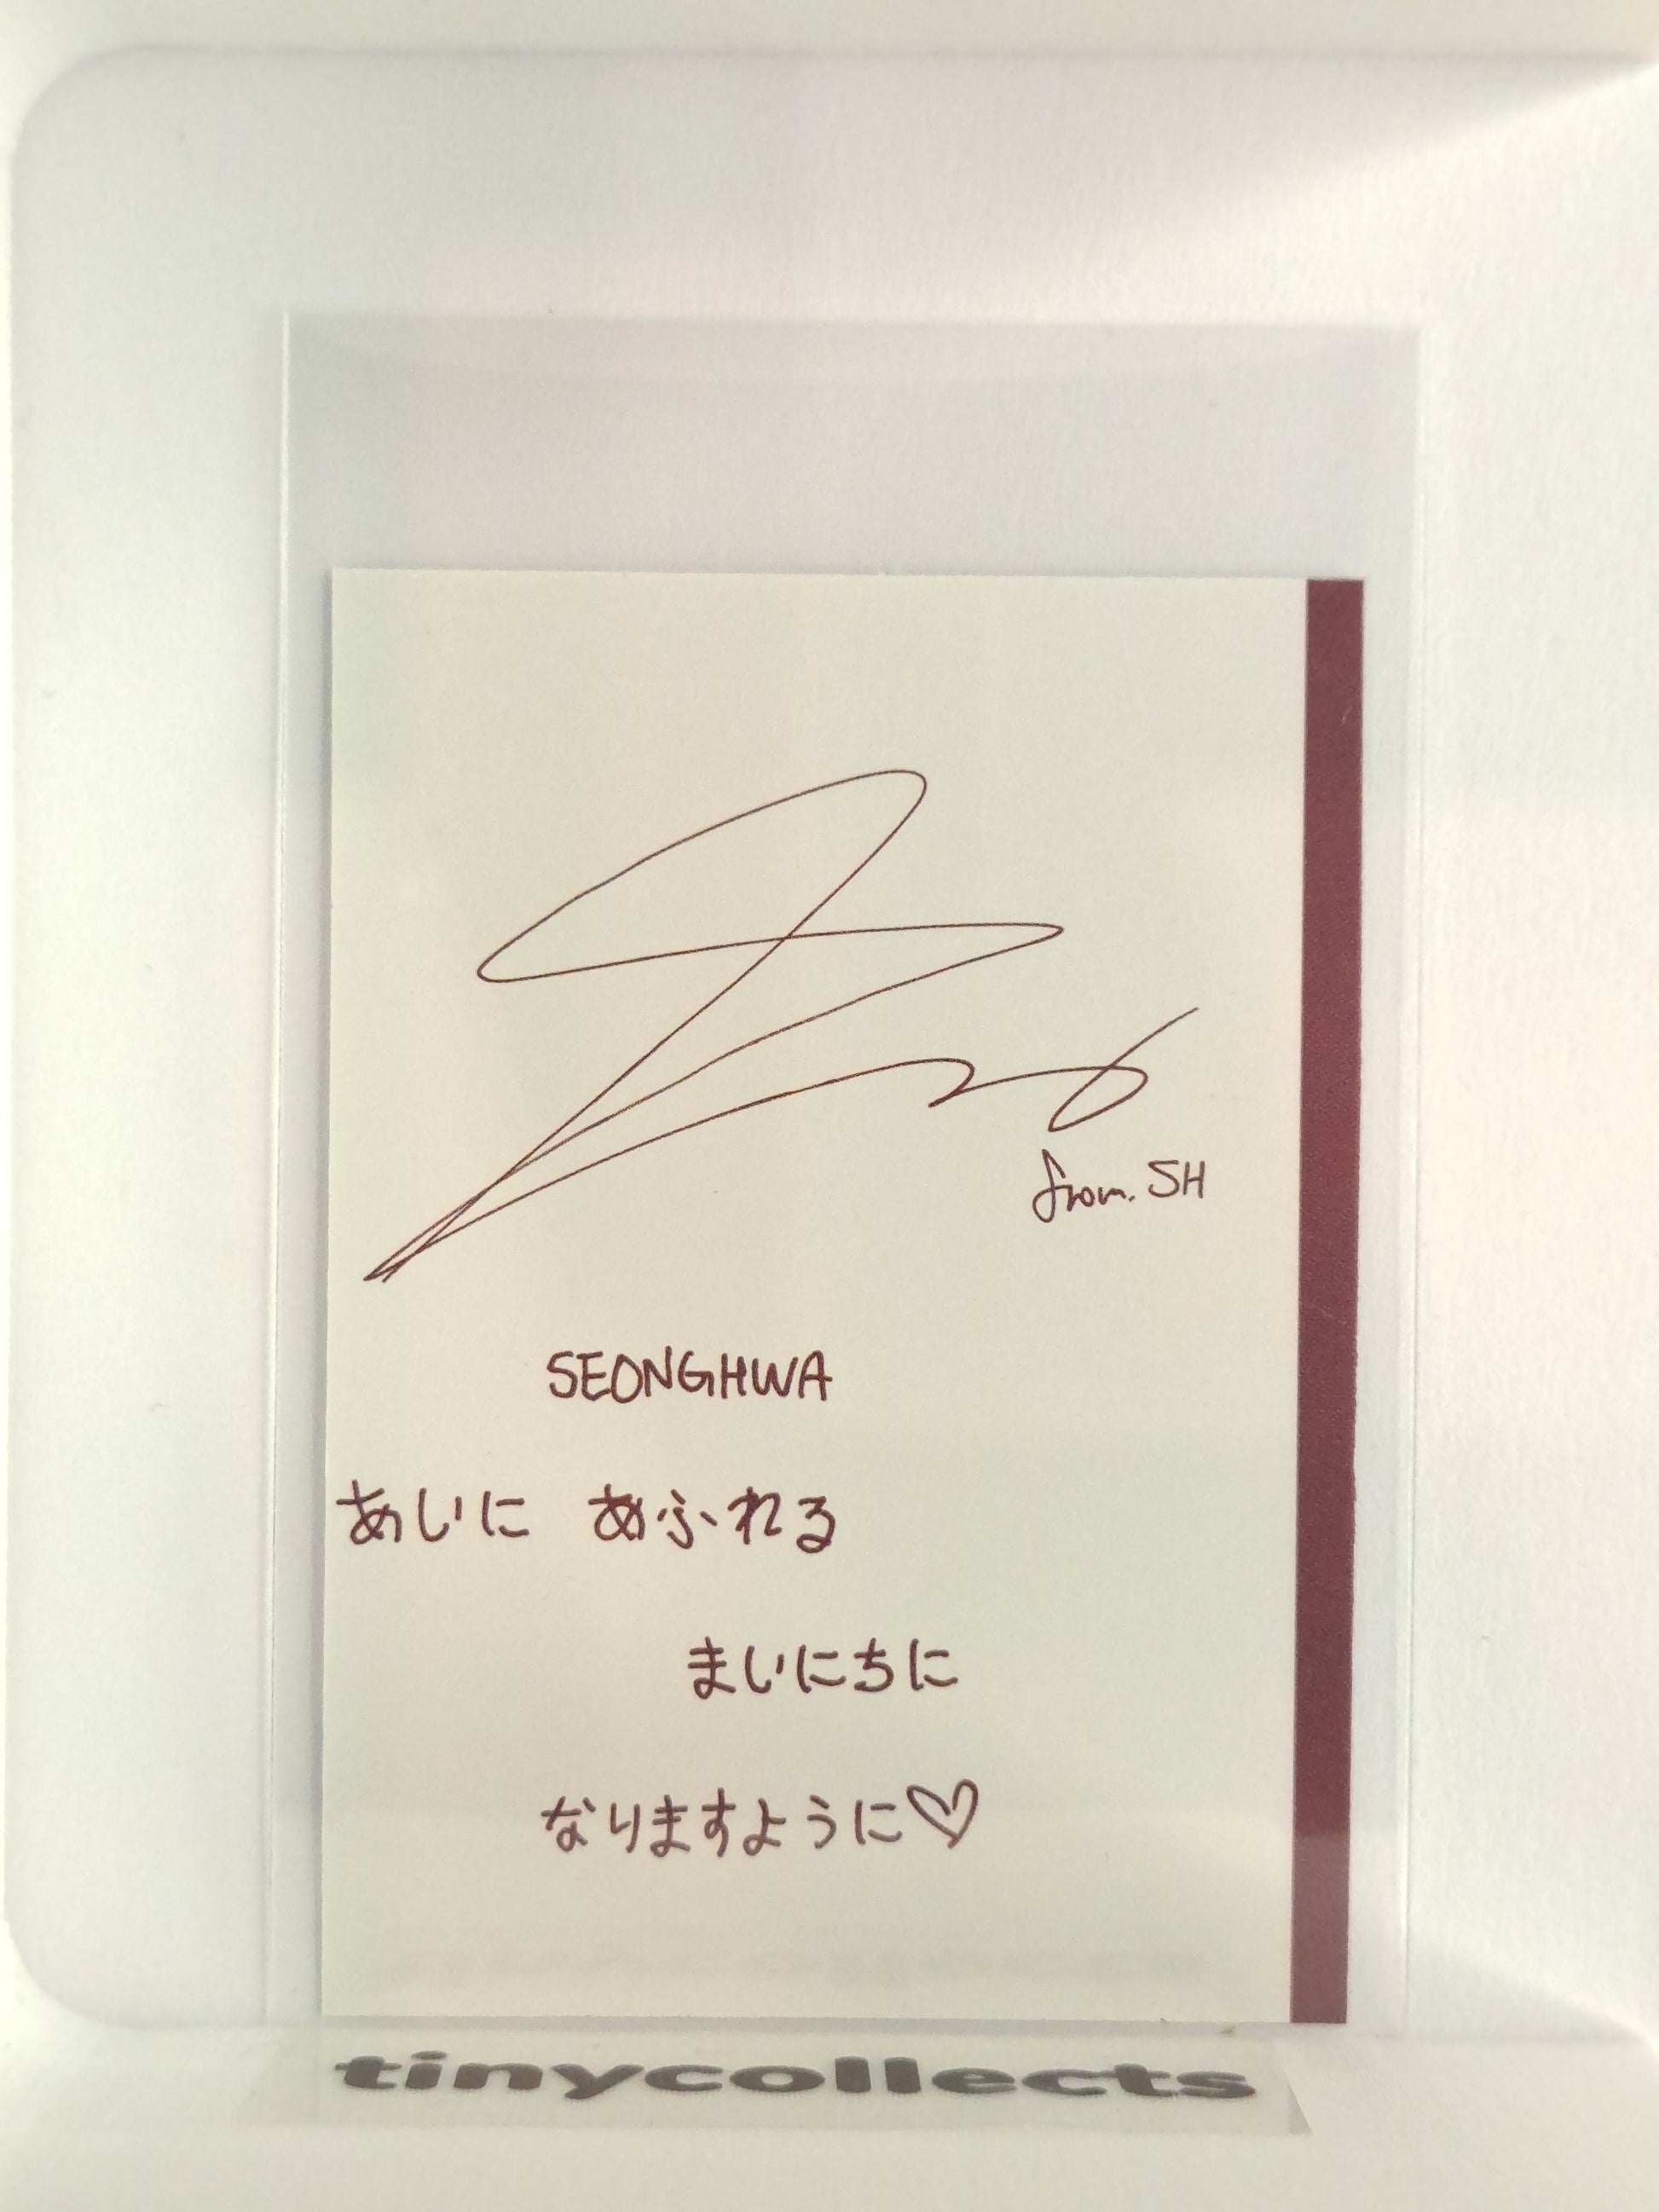 from. SH
SEONGHWA
あいに あふれる
まいにちに
なりますように♡
tinycollects